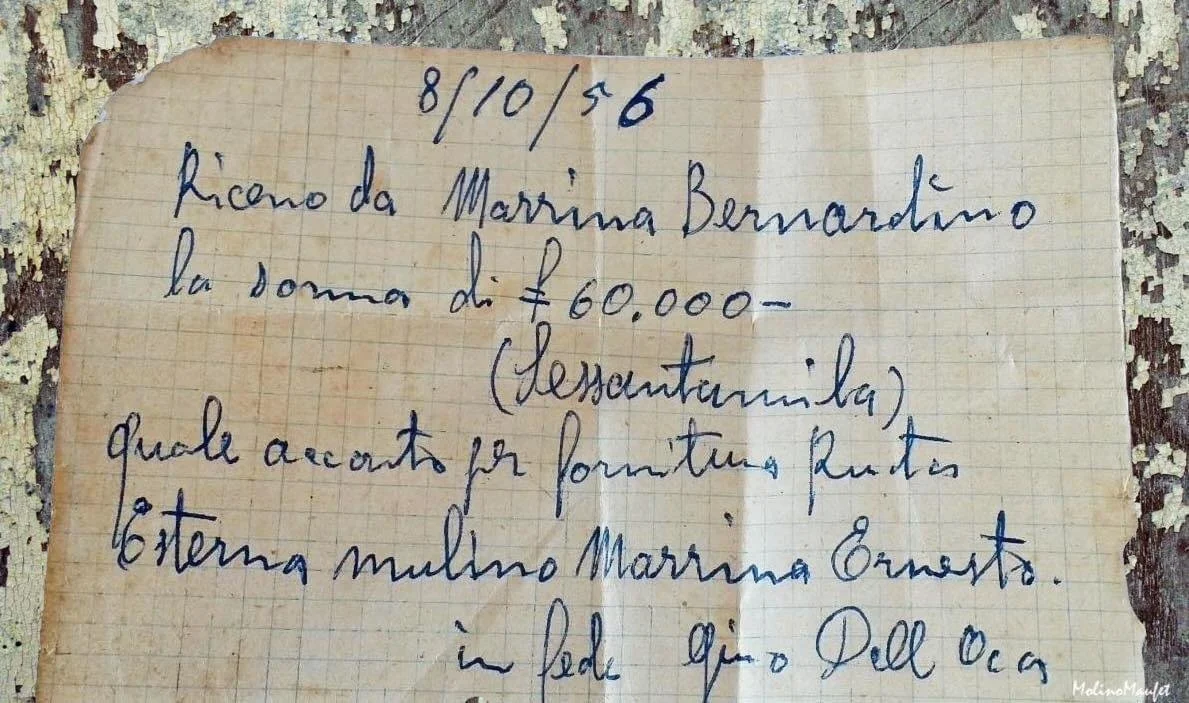 8/10/56
Ricevo da Marrina Bernardino
la somma di £ 60.000-
(Sessantamila)
quale acconto per fornitura Ruota
Esterna mulino Marrina Ernesto.
in fede Gino Dell Oca
MolinoMaufet